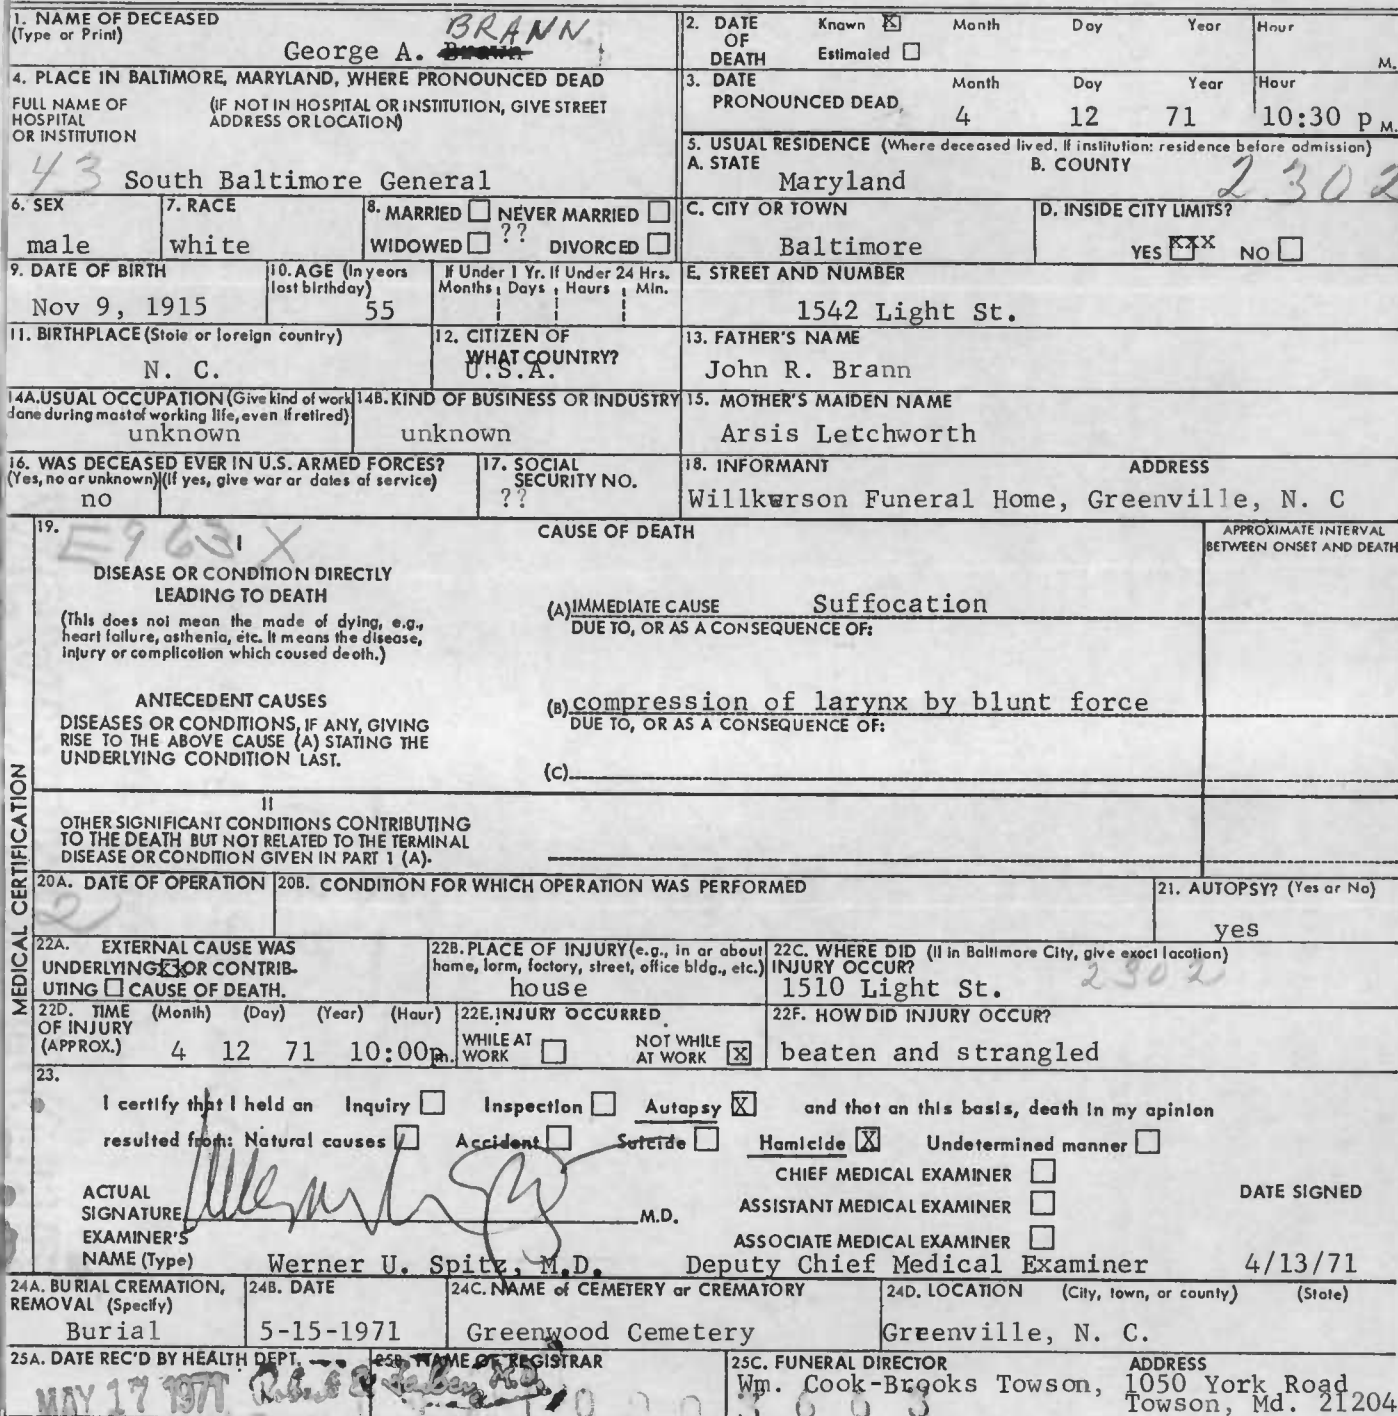 1. NAME OF DECEASED
(Type or Print)
BRANN
George A. Brown
2. DATE OF DEATH Known X Estimated
Month Day Year Hour
M.
4. PLACE IN BALTIMORE, MARYLAND, WHERE PRONOUNCED DEAD
FULL NAME OF HOSPITAL OR INSTITUTION
(IF NOT IN HOSPITAL OR INSTITUTION, GIVE STREET ADDRESS OR LOCATION)
43 South Baltimore General
3. DATE PRONOUNCED DEAD
Month Day Year Hour
4 12 71 10:30 p M.
5. USUAL RESIDENCE (Where deceased lived. If institution: residence before admission)
A. STATE B. COUNTY
Maryland 2302
6. SEX
male
7. RACE
white
8. MARRIED NEVER MARRIED
WIDOWED ?? DIVORCED
C. CITY OR TOWN
Baltimore
D. INSIDE CITY LIMITS?
YES XXX NO
9. DATE OF BIRTH
Nov 9, 1915
10. AGE (In years last birthday)
55
If Under 1 Yr. If Under 24 Hrs.
Months Days Hours Min.
E. STREET AND NUMBER
1542 Light St.
11. BIRTHPLACE (State or foreign country)
N. C.
12. CITIZEN OF WHAT COUNTRY?
U.S.A.
13. FATHER'S NAME
John R. Brann
14A. USUAL OCCUPATION (Give kind of work done during most of working life, even if retired)
unknown
14B. KIND OF BUSINESS OR INDUSTRY
unknown
15. MOTHER'S MAIDEN NAME
Arsis Letchworth
16. WAS DECEASED EVER IN U.S. ARMED FORCES?
(Yes, no or unknown) (If yes, give war or dates of service)
no
17. SOCIAL SECURITY NO.
??
18. INFORMANT ADDRESS
Willkerson Funeral Home, Greenville, N. C
MEDICAL CERTIFICATION
19.
E963X
CAUSE OF DEATH
APPROXIMATE INTERVAL
BETWEEN ONSET AND DEATH
I
DISEASE OR CONDITION DIRECTLY
LEADING TO DEATH
(This does not mean the mode of dying, e.g.,
heart failure, asthenia, etc. It means the disease,
injury or complication which caused death.)
(A) IMMEDIATE CAUSE Suffocation
DUE TO, OR AS A CONSEQUENCE OF:
ANTECEDENT CAUSES
DISEASES OR CONDITIONS, IF ANY, GIVING
RISE TO THE ABOVE CAUSE (A) STATING THE
UNDERLYING CONDITION LAST.
(B) compression of larynx by blunt force
DUE TO, OR AS A CONSEQUENCE OF:
(C)
II
OTHER SIGNIFICANT CONDITIONS CONTRIBUTING
TO THE DEATH BUT NOT RELATED TO THE TERMINAL
DISEASE OR CONDITION GIVEN IN PART 1 (A).
20A. DATE OF OPERATION
2
20B. CONDITION FOR WHICH OPERATION WAS PERFORMED
21. AUTOPSY? (Yes or No)
yes
22A. EXTERNAL CAUSE WAS
UNDERLYING XX OR CONTRIB-
UTING CAUSE OF DEATH.
22B. PLACE OF INJURY (e.g., in or about
home, farm, factory, street, office bldg., etc.)
house
22C. WHERE DID INJURY OCCUR? (If in Baltimore City, give exact location)
1510 Light St. 2302
22D. TIME OF INJURY (APPROX.)
(Month) (Day) (Year) (Hour)
4 12 71 10:00p m.
22E. INJURY OCCURRED
WHILE AT WORK NOT WHILE AT WORK X
22F. HOW DID INJURY OCCUR?
beaten and strangled
23.
I certify that I held an Inquiry Inspection Autopsy X and that on this basis, death in my opinion
resulted from: Natural causes Accident Suicide Homicide X Undetermined manner
CHIEF MEDICAL EXAMINER
ACTUAL SIGNATURE M.D.
ASSISTANT MEDICAL EXAMINER
DATE SIGNED
ASSOCIATE MEDICAL EXAMINER
EXAMINER'S NAME (Type) Werner U. Spitz, M.D. Deputy Chief Medical Examiner 4/13/71
24A. BURIAL CREMATION, REMOVAL (Specify)
Burial
24B. DATE
5-15-1971
24C. NAME of CEMETERY or CREMATORY
Greenwood Cemetery
24D. LOCATION (City, town, or county) (State)
Greenville, N. C.
25A. DATE REC'D BY HEALTH DEPT.
MAY 17 1971
25B. NAME OF REGISTRAR
25C. FUNERAL DIRECTOR ADDRESS
Wm. Cook-Brooks Towson, 1050 York Road
Towson, Md. 21204